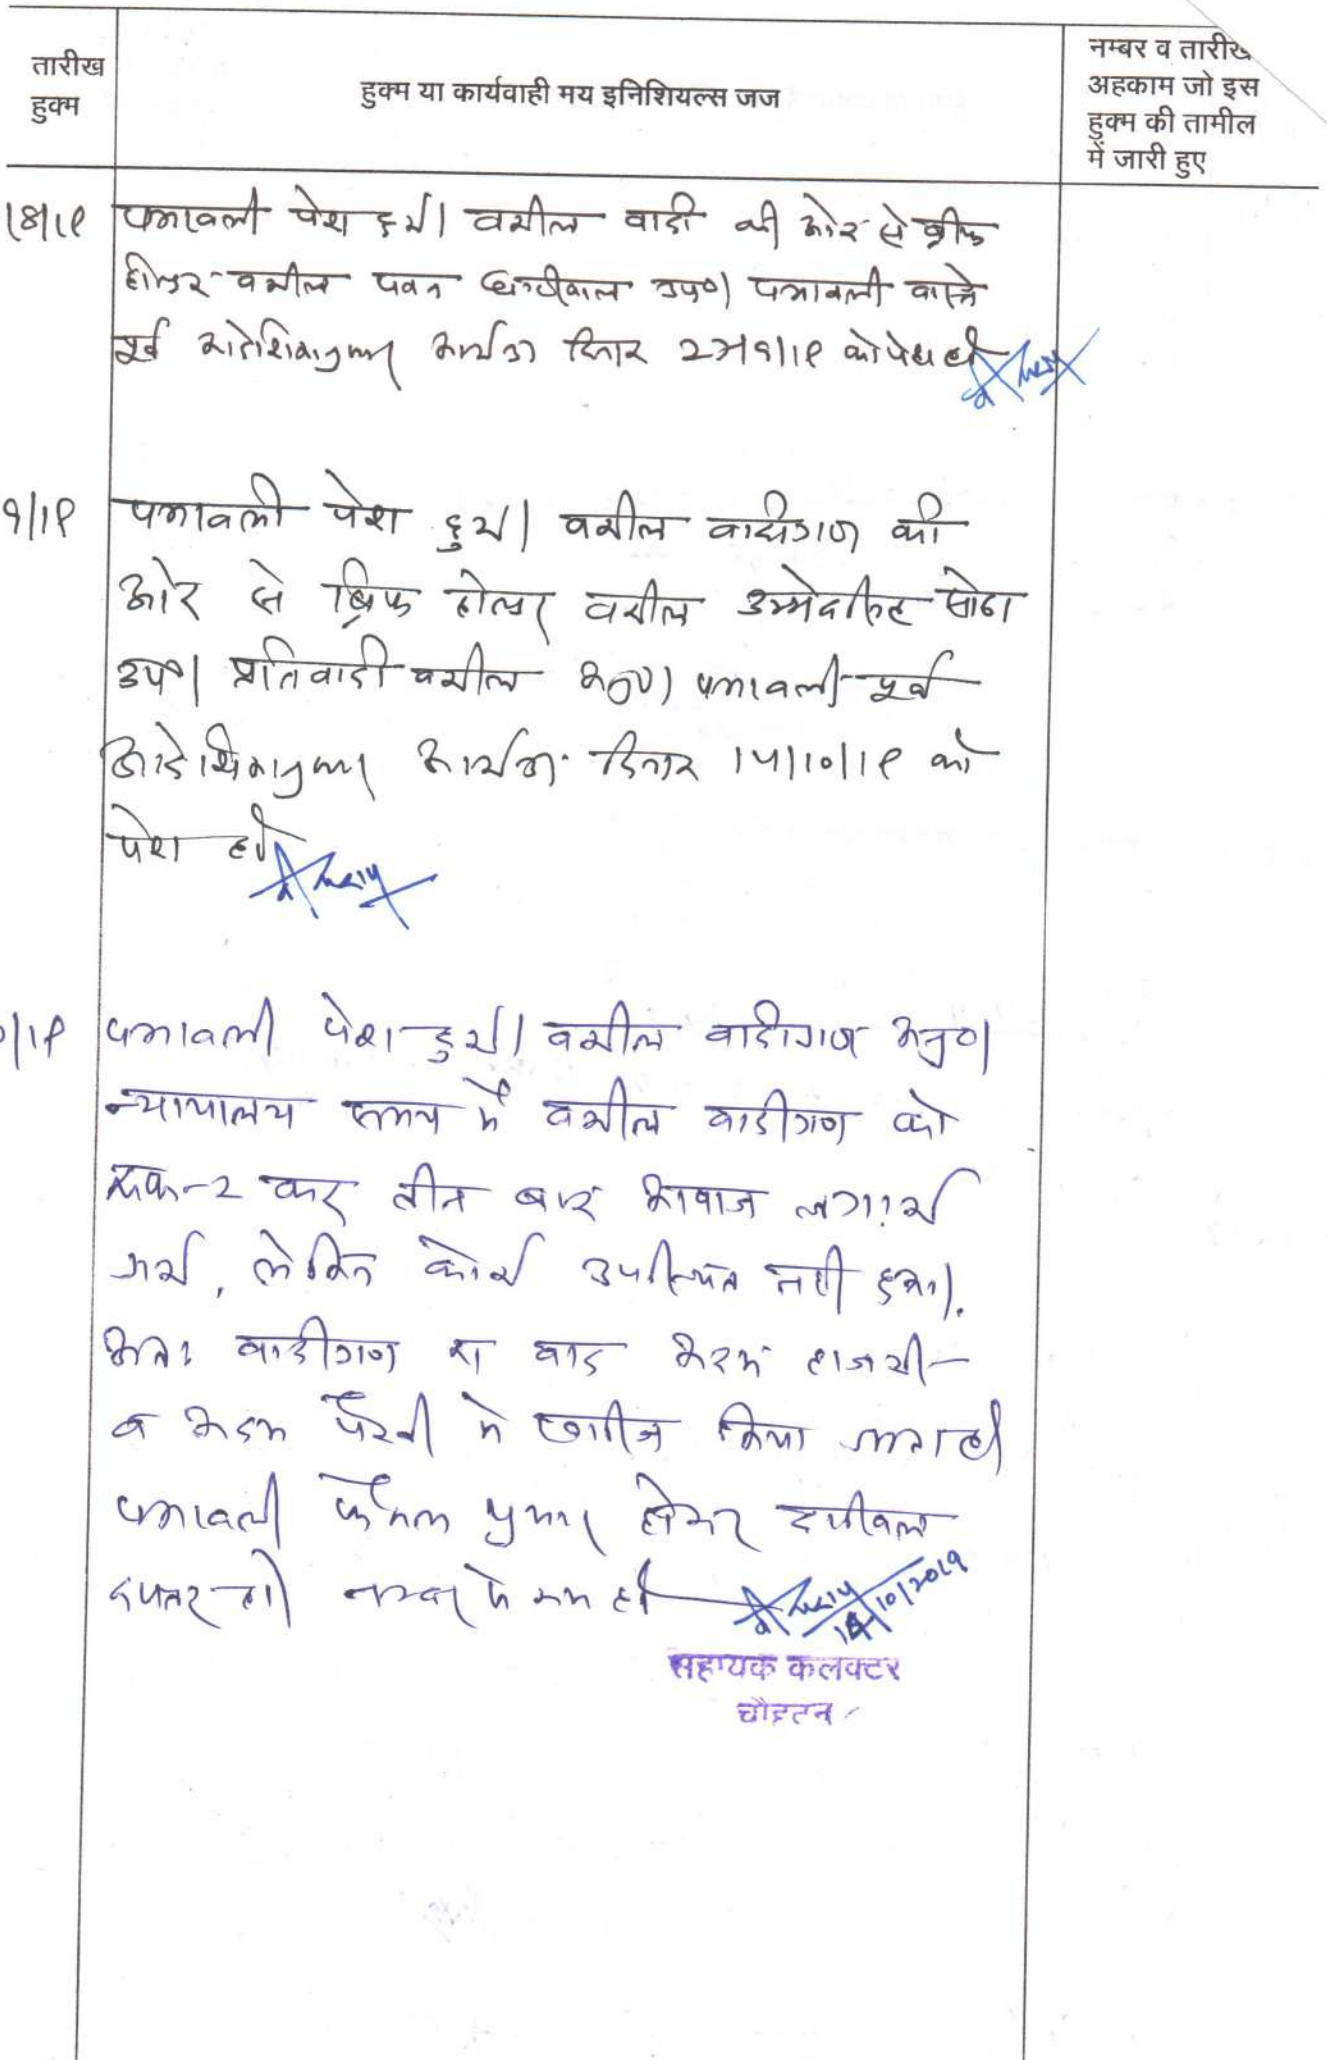 तारीख
हुक्म
हुक्म या कार्यवाही मय इनिशियल्स जज
नम्बर व तारीख
अहकाम जो इस
हुक्म की तामील
में जारी हुए
पत्रावली पेश हुई। वकील वादी की ओर से ब्रीफ
होल्डर वकील पवन उप०। पत्रावली वास्ते
पूर्व आदेशिकानुसार कार्यवा दिनांक को पेश हो
9/19 पत्रावली पेश हुई। वकील वादीगण की
ओर से ब्रिफ होल्डर वकील उम्मेदसिंह सोढा
उप०। प्रतिवादी वकील अनु०। पत्रावली पूर्व
आदेशिकानुसार कार्यवा. दिनांक 14/10/19 को
पेश हो
0/19 पत्रावली पेश हुई। वकील वादीगण अनु०।
न्यायालय समय में वकील वादीगण को
एक-2 कर तीन बार आवाज लगाई
गई, लेकिन कोई उपस्थित नही हुआ।
अतः वादीगण का वाद अदम हाजरी
व अदम पैरवी मे खारीज किया जाता है
पत्रावली फैसल शुमार होकर दाखील
दफ्तर हो। नम्बर से कम हो
14/10/2019
सहायक कलक्टर
चौहटन